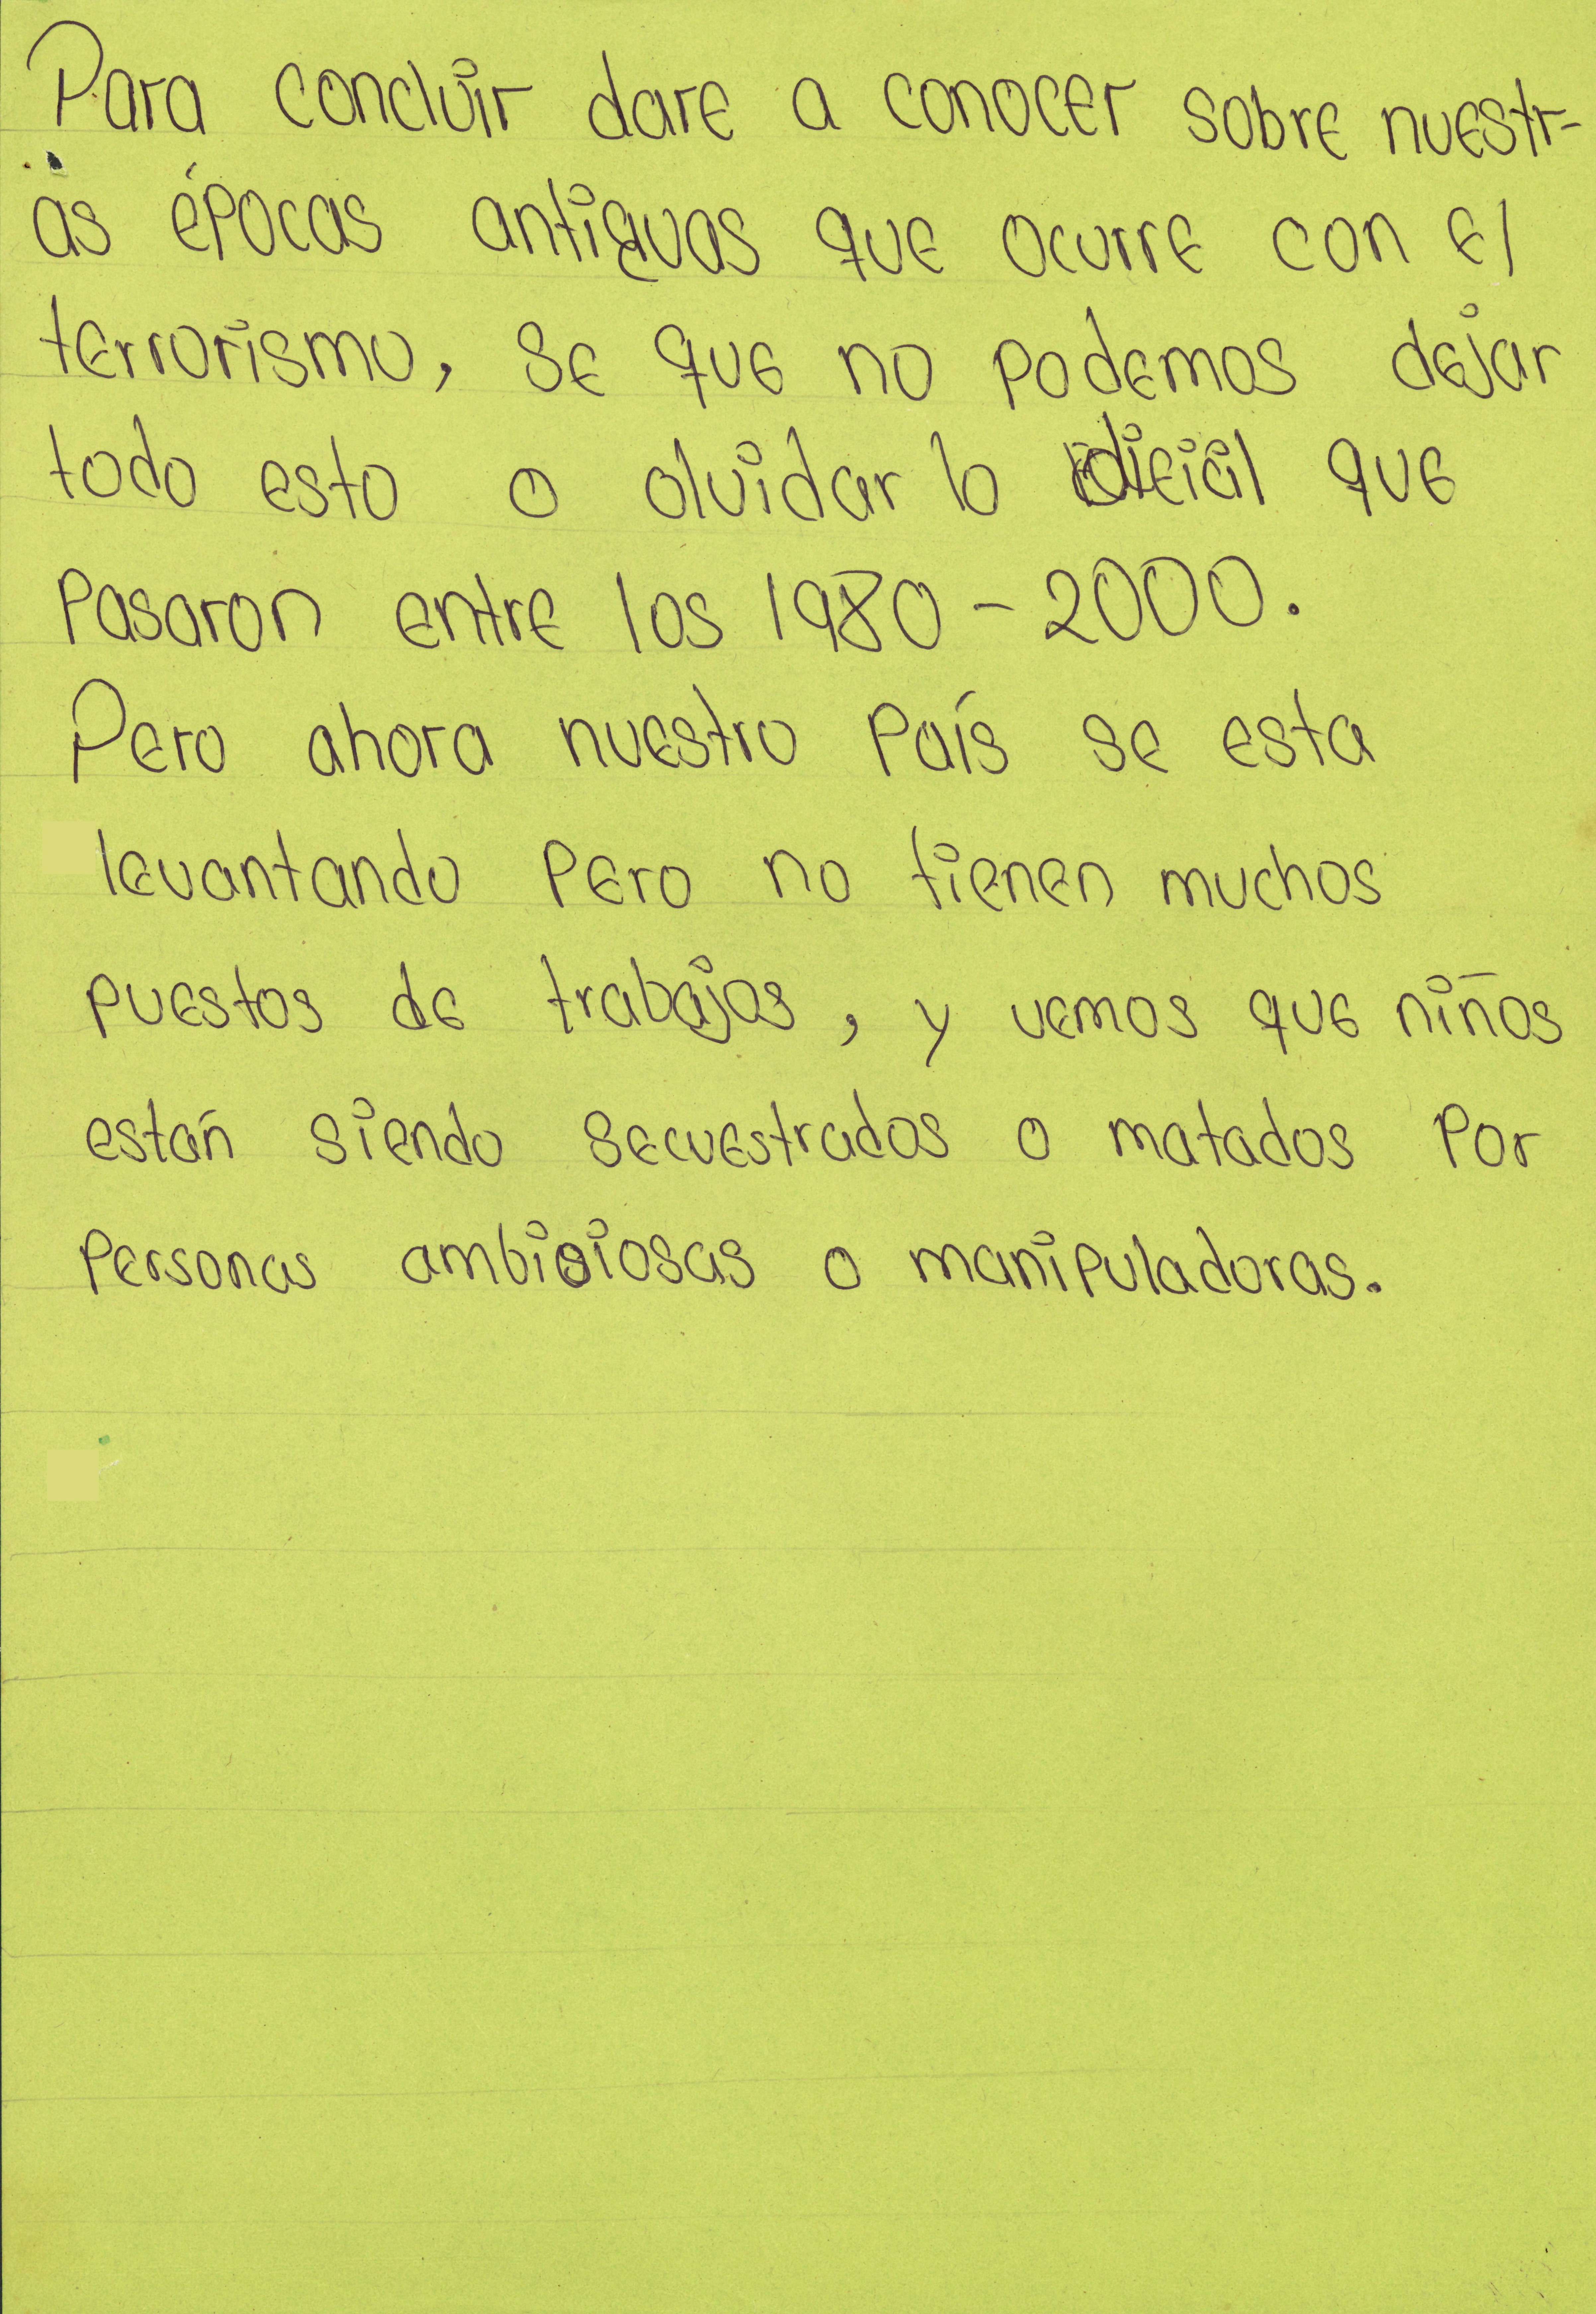 Para concluir dare a conocer sobre nuestr-
as épocas antiguas que ocurre con el
terrorismo, se que no podemos dejar
todo esto o olvidar lo que
pasaron entre los 1980 - 2000.
Pero ahora nuestro país se esta
levantando pero no tienen muchos
puestos de trabajos, y vemos que niños
están siendo secuestrados o matados por
personas ambiciosas o manipuladoras.